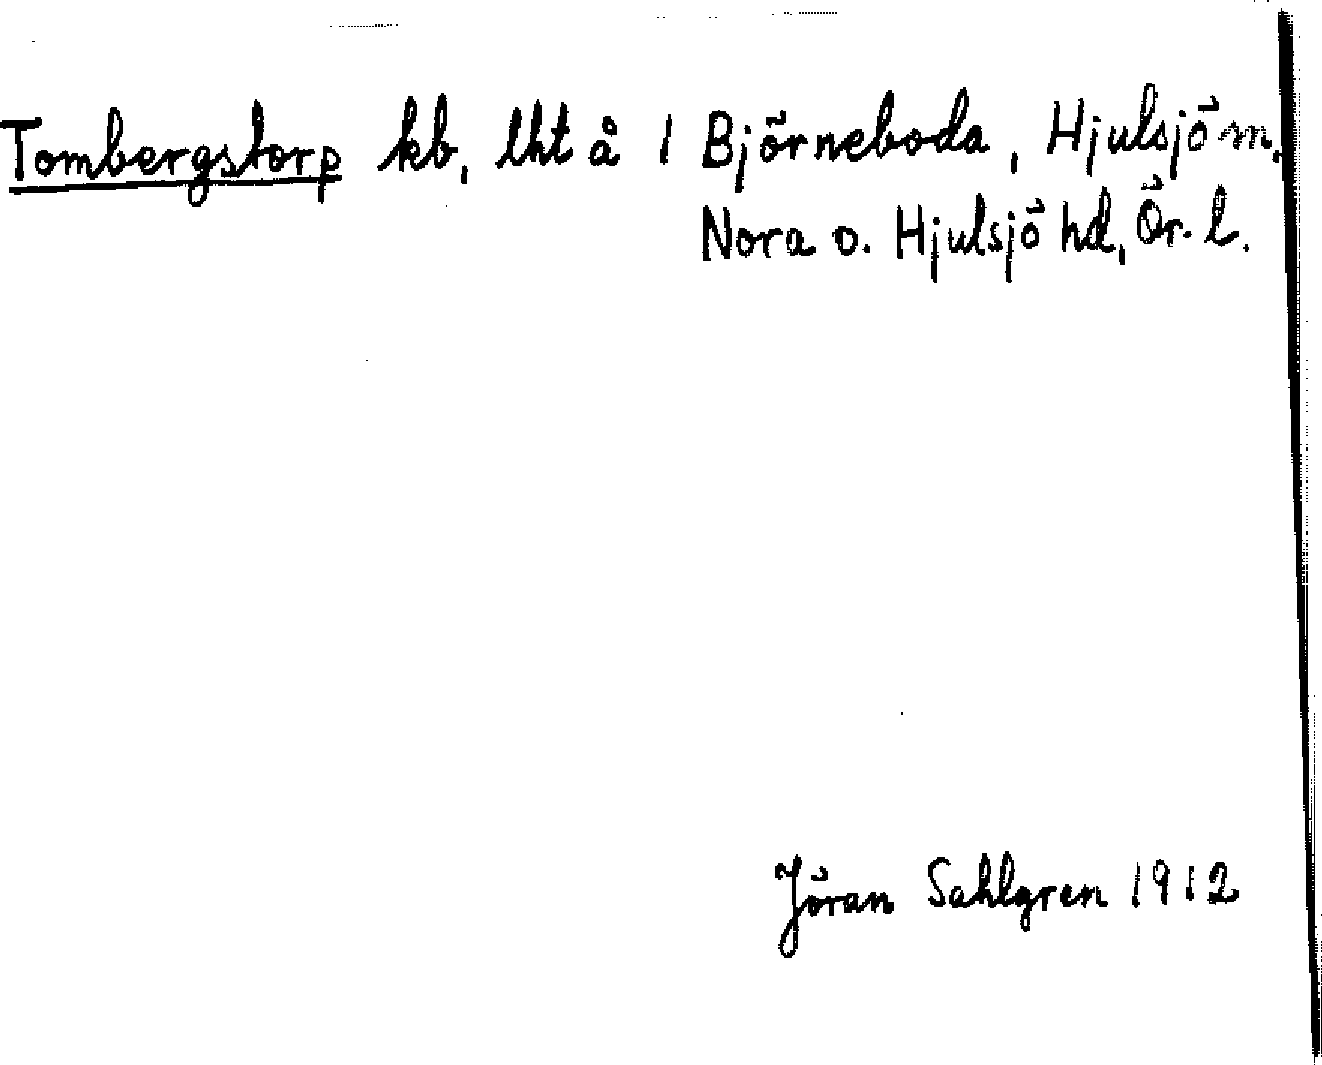 Tombergstorp kb, lht å 1 Björneboda, Hjulsjö sn,
Nora o. Hjulsjö hd, Ör. l.
Jöran Sahlgren 1912